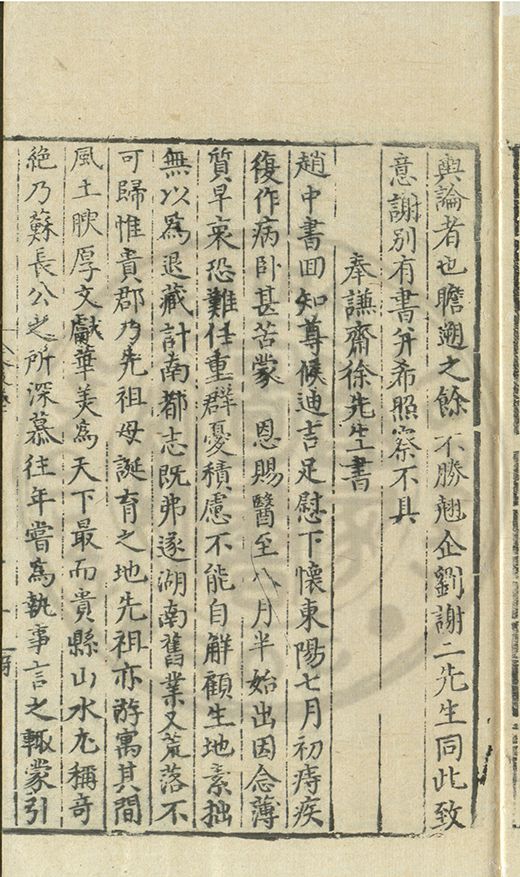 輿論者也瞻遡之餘不勝翹企劉謝二先生同此致
意謝別有書并希照察不具
奉謙齋徐先生書
趙中書囬知尊候迪吉足慰下懷東陽七月初痔疾
復作病卧甚苦蒙 恩賜醫至八月半始出因念薄
質早衰恐難任重群憂積慮不能自解顧生地素拙
無以為退藏計南都志既弗遂湖南舊業又荒落不
可歸惟貴郡乃先祖母誕育之地先祖亦游寓其間
風土腴厚文獻華美為天下最而貴縣山水尤稱奇
絶乃蘇長公之所深慕往年嘗為執事言之輙蒙引